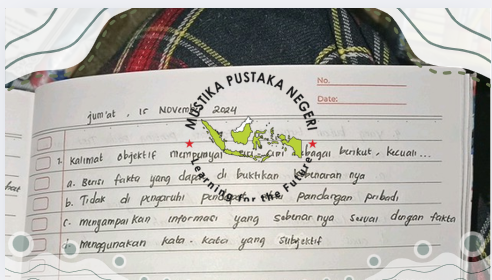 No.
Date:
jum'at, 15 November 2024
MUSTIKA PUSTAKA NEGERI
Learning for the Future
1. Kalimat objektif mempunyai ciri-ciri sebagai berikut, kecuali...
a. Berisi fakta yang dapat di buktikan kebenaran nya
b. Tidak di pengaruhi pendapat pandangan pribadi
c. mengampaikan informasi yang sebenar nya sesuai dengan fakta
d. menggunakan kata-kata yang subjektif